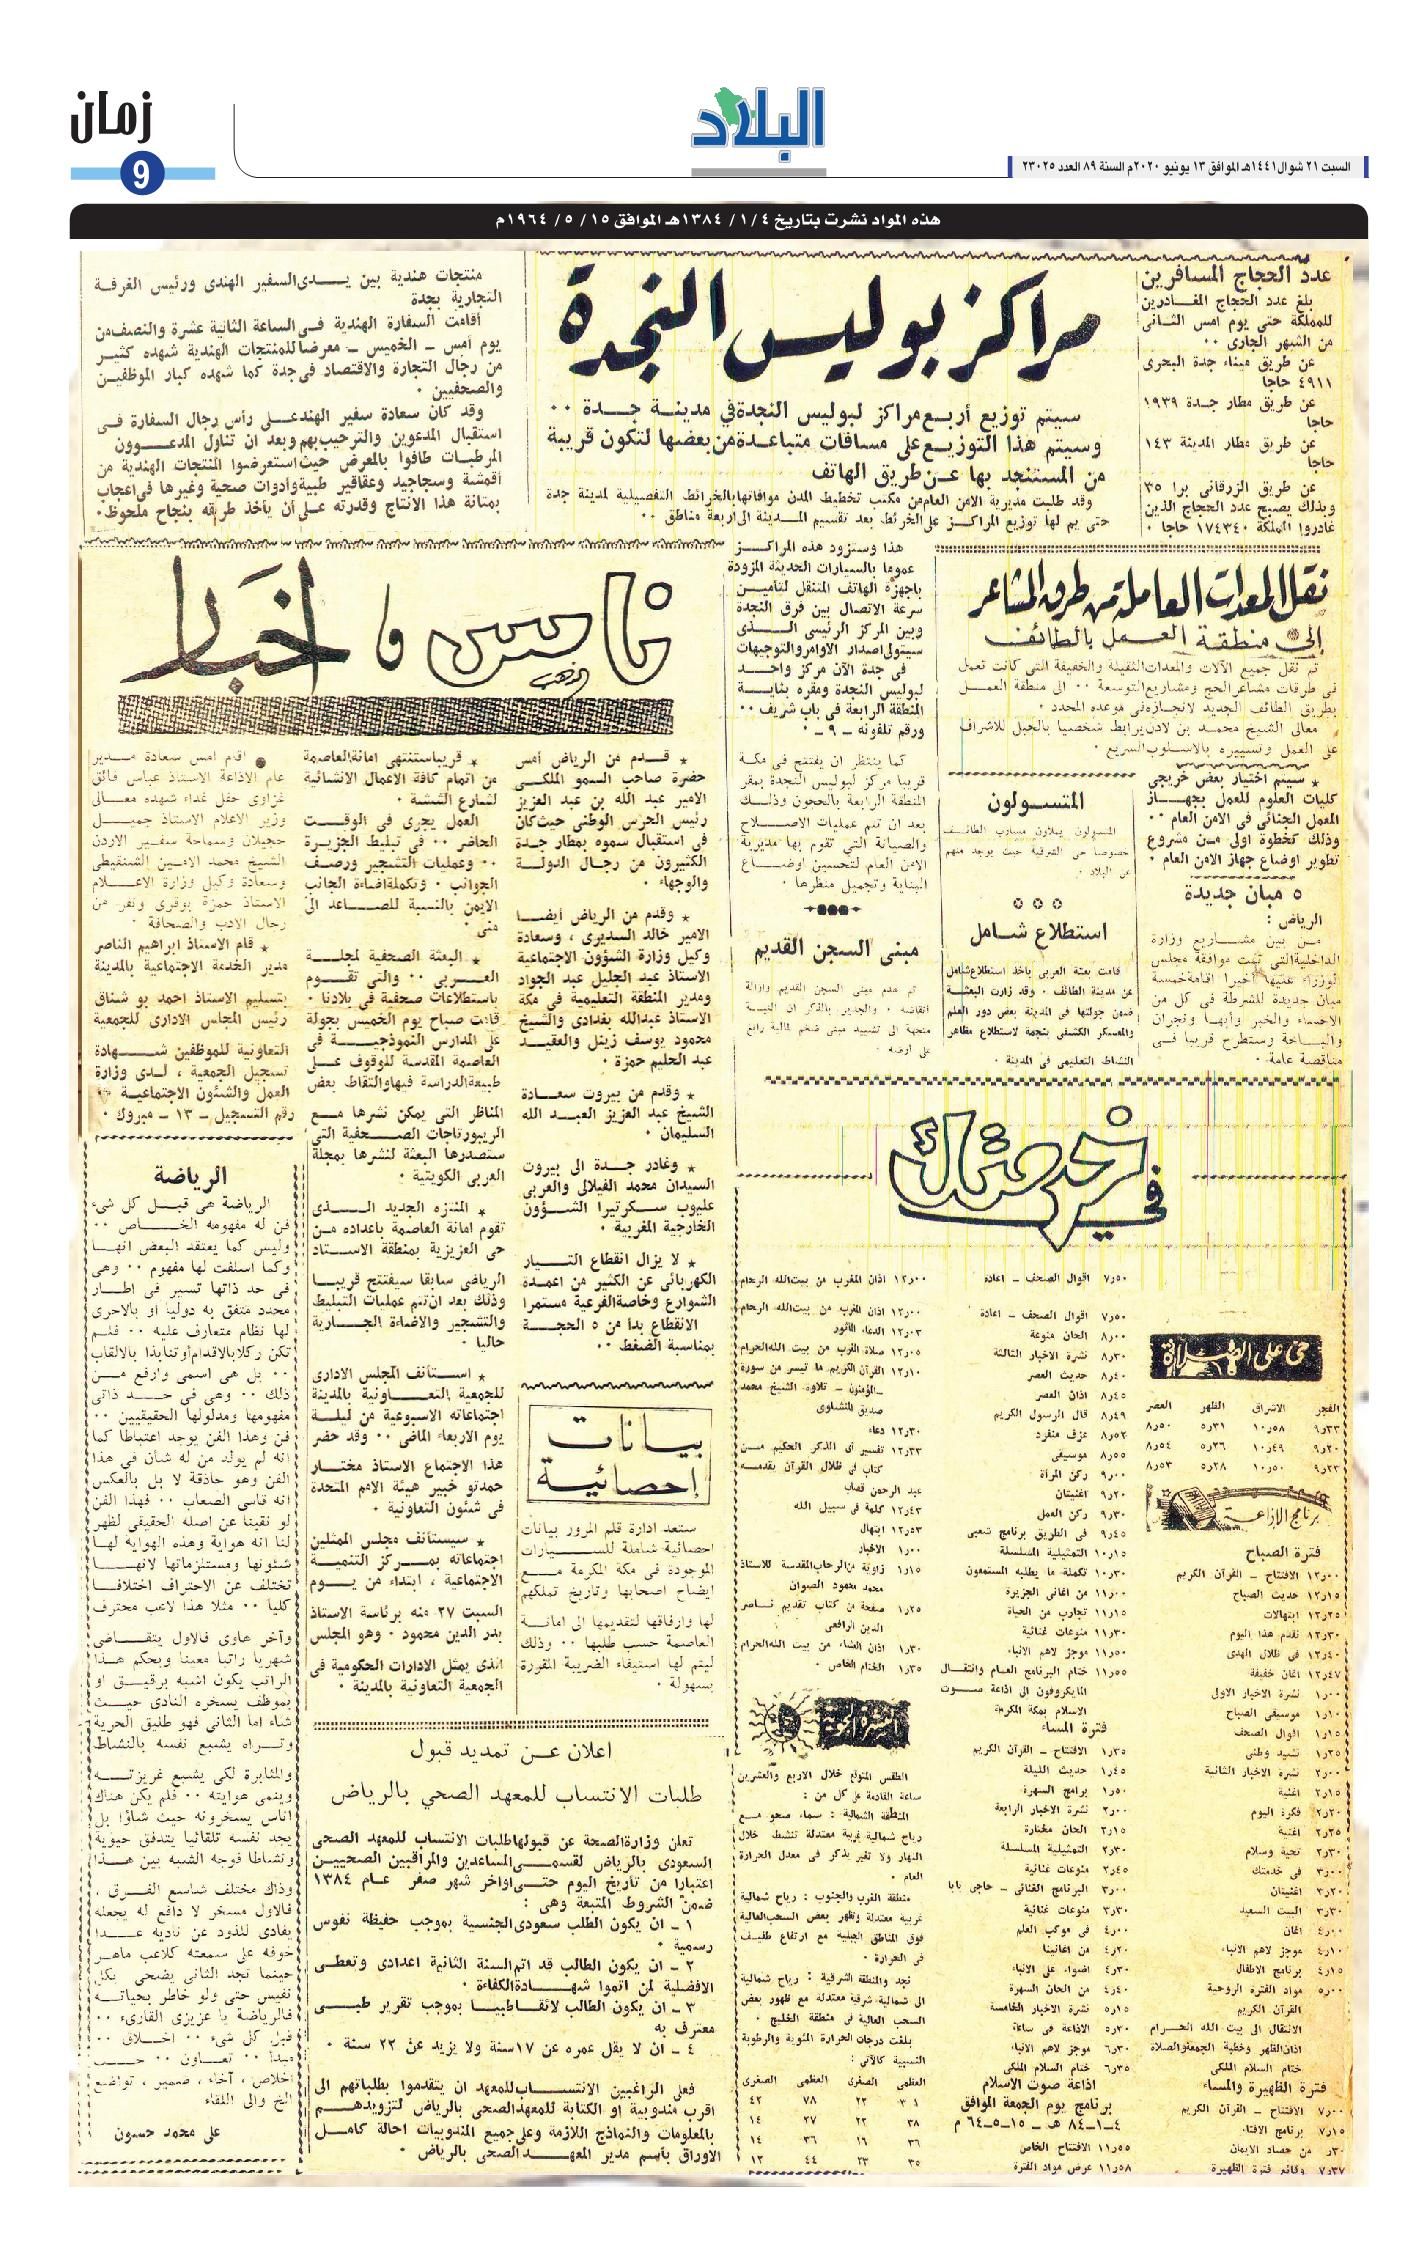 البلاد
زمان
9
السبت ٢١ شوال ١٤٤١هـ الموافق ١٣ يونيو ٢٠٢٠م السنة ٨٩ العدد ٢٣٠٢٥
هذه المواد نشرت بتاريخ ٤ /١ /١٣٨٤هـ الموافق ١٥ /٥ /١٩٦٤م
عدد الحجاج المسافرين
بلغ عدد الحجاج المغادرين
للمملكة حتى يوم امس الثانى
من الشهر الجارى ٠٠
عن طريق ميناء جدة البحرى
٤٩١١ حاجا
عن طريق مطار جدة ١٩٣٩
حاجا
عن طريق مطار المدينة ١٤٣
حاجا
عن طريق الزرقانى برا ٣٥
وبذلك يصبح عدد الحجاج الذين
غادروا المملكة ١٧٤٣٤٠ حاجا ٠
مراكز بوليس النجدة
سيتم توزيع أربع مراكز لبوليس النجدة في مدينة جدة ٠٠
وسيتم هذا التوزيع على مسافات متباعدة من بعضها لتكون قريبة
من المستنجد بها عن طريق الهاتف
وقد طلبت مديرية الامن العام من مكتب تخطيط المدن موافاتها بالخرائط التفصيلية لمدينة جدة
حتى يم لها توزيع المراكز على الخرائط بعد تقسيم المدينة الى اربعة مناطق ٠٠
هذا وستزود هذه المراكز
عموما بالسيارات الحديثة المزودة
باجهزة الهاتف المتنقل لتأمين
سرعة الاتصال بين فرق النجدة
وبين المركز الرئيسى الذى
سيتولى اصدار الاوامر والتوجيهات
فى جدة الآن مركز واحد
لبوليس النجدة ومقره بناية
المنطقة الرابعة فى باب شريف ٠٠
ورقم تلفونه ـ ٩ ـ ٠
كما ينتظر ان يفتتح فى مكة
قريبا مركز لبوليس النجدة بمقر
المنطقة الرابعة بالحجون وذلك
بعد ان تتم عمليات الاصلاح
والصيانة التي تقوم بها مديرية
الامن العام لتحسين اوضاع
البناية وتجميل منظرها ٠
مبنى السجن القديم
تم هدم مبنى السجن القديم وازالة
انقاضه ٠ والجدير بالذكر ان النية
متجهة الى تشييد مبنى ضخم
على ارضه ٠
منتجات هندية بين يدى السفير الهندى ورئيس الغرفة
التجارية بجدة
أقامت السفارة الهندية فى الساعة الثانية عشرة والنصف من
يوم أمس ـ الخميس ـ معرضا للمنتجات الهندية شهده كثير
من رجال التجارة والاقتصاد فى جدة كما شهده كبار الموظفين
والصحفيين ٠
وقد كان سعادة سفير الهند على رأس رجال السفارة فى
استقبال المدعوين والترحيب بهم وبعد ان تناول المدعوون
المرطبات طافوا بالمعرض حيث استعرضوا المنتجات الهندية من
أقمشة وسجاجيد وعقاقير طبية وأدوات صحية وغيرها فى اعجاب
بمتانة هذا الانتاج وقدرته على أن يأخذ طريقه بنجاح ملحوظ ٠
نقل المعدات العاملة من طرق المشاعر
إلى منطقة العمل بالطائف
تم نقل جميع الآلات والمعدات الثقيلة والخفيفة التى كانت تعمل
فى طرقات مشاعر الحج ومشاريع التوسعة ٠٠ الى منطقة العمل
بطريق الطائف الجديد لانجازه فى موعده المحدد ٠
معالى الشيخ محمد بن لادن يرابط شخصيا بالجبل للاشراف
على العمل وتسييره بالاسلوب السريع ٠
★ سيتم اختيار بعض خريجى
كليات العلوم للعمل بجهاز
المعمل الجنائى فى الامن العام ٠٠
وذلك كخطوة اولى من مشروع
تطوير اوضاع جهاز الامن العام ٠
٥ مبان جديدة
الرياض :
من بين مشاريع وزارة
الداخلية التى تمت موافقة مجلس
الوزراء عليها أخيرا اقامة خمسة
مبان جديدة للشرطة فى كل من
الاحساء والخبر وأبها ونجران
والباحة وستطرح قريبا فى
مناقصة عامة ٠
المتسولون
المتسولون يملاون مسارب الطائف
خصوصا حى الشرقية حيث يوجد منهم
عن البلاد ٠
استطلاع شامل
قامت بعثة العربى باخذ استطلاع شامل
عن مدينة الطائف ٠ وقد زارت البعثة
ضمن جولتها فى المدينة بعض دور العلم
والمعسكر الكشفى بنجمة لاستطلاع مظاهر
النشاط التعليمى فى المدينة ٠
ناس وأخبار
★ قدم من الرياض أمس
حضرة صاحب السمو الملكى
الامير عبد الله بن عبد العزيز
رئيس الحرس الوطنى حيث كان
فى استقبال سموه بمطار جدة
الكثيرون من رجال الدولة
والوجهاء ٠
★ وقدم من الرياض أيضا
الامير خالد السديرى ، وسعادة
وكيل وزارة الشؤون الاجتماعية
الاستاذ عبد الجليل عبد الجواد
ومدير المنطقة التعليمية فى مكة
الاستاذ عبدالله بغدادى والشيخ
محمود يوسف زينل والعقيد
عبد الحليم حمزة ٠
★ وقدم من بيروت سعادة
الشيخ عبد العزيز العبد الله
السليمان ٠
★ وغادر جدة الى بيروت
السيدان محمد الفيلالى والعربى
عليوب سكرتيرا الشؤون
الخارجية المغربية ٠
★ لا يزال انقطاع التيار
الكهربائى عن الكثير من اعمدة
الشوارع وخاصة الفرعية مستمرا
الانقطاع بدا من ٥ الحجة
بمناسبة الضغط ٠٠
★ قريبا ستنتهى امانة العاصمة
من اتمام كافة الاعمال الانشائية
لشارع الششة ٠
العمل يجرى فى الوقت
الحاضر ٠٠ فى تبليط الجزيرة
٠٠ وعمليات التشجير ورصف
الجوانب ٠ وتكملة اضاءة الجانب
الايمن بالنسبة للصاعد الى
منى ٠
★ البعثة الصحفية لمجلة
العربى ٠٠ والتى تقوم
باستطلاعات صحفية فى بلادنا ٠
قامت صباح يوم الخميس بجولة
على المدارس النموذجية فى
العاصمة المقدسة للوقوف على
طبيعة الدراسة فيها والتقاط بعض
المناظر التى يمكن نشرها مع
الريبورتاجات الصحفية التى
ستصدرها البعثة لنشرها بمجلة
العربى الكويتية ٠
★ المنتزه الجديد الذى
تقوم امانة العاصمة باعداده من
حى العزيزية بمنطقة الاستاد
الرياضى سابقا سيفتتح قريبا
وذلك بعد ان تتم عمليات التبليط
والتشجير والاضاءة الجارية
حاليا ٠
★ استأنف المجلس الادارى
للجمعية التعاونية بالمدينة
اجتماعاته الاسبوعية من ليلة
يوم الاربعاء الماضى ٠٠ وقد حضر
هذا الاجتماع الاستاذ مختار
حمدتو خبير هيئة الامم المتحدة
فى شئون التعاونية ٠
★ سيستأنف مجلس الممثلين
اجتماعاته بمركز التنمية
الاجتماعية ، ابتداء من يوم
السبت ٢٧ منه برئاسة الاستاذ
بدر الدين محمود ٠ وهو المجلس
الذى يمثل الادارات الحكومية فى
الجمعية التعاونية بالمدينة ٠
● اقام امس سعادة مدير
عام الاذاعة الاستاذ عباس فائق
غزاوى حفل غداء شهده معالى
وزير الاعلام الاستاذ جميل
حجيلان وسماحة سفير الاردن
الشيخ محمد الامين الشنقيطى
وسعادة وكيل وزارة الاعلام
الاستاذ حمزة بوقرى ونفر من
رجال الادب والصحافة ٠
★ قام الاستاذ ابراهيم الناصر
مدير الخدمة الاجتماعية بالمدينة
بتسليم الاستاذ احمد بو شناق
رئيس المجلس الادارى للجمعية
التعاونية للموظفين شهادة
تسجيل الجمعية ، لدى وزارة
العمل والشئون الاجتماعية ٠٠
رقم التسجيل ـ ١٣ ـ مبروك ٠
بيانات
إحصائية
ستعد ادارة قلم المرور بيانات
احصائية شاملة للسيارات
الموجودة فى مكة المكرمة مع
ايضاح اصحابها وتاريخ تملكهم
لها وارفاقها لتقديمها الى امانة
العاصمة حسب طلبها ٠٠ وذلك
ليتم لها استيفاء الضريبة المقررة
بسهولة ٠
الرياضة
الرياضة هى قبل كل شىء
فن له مفهومه الخاص ٠٠
وليس كما يعتقد البعض انها
وكما اسلفت لها مفهوم ٠٠ وهى
فى حد ذاتها تسير فى اطار
محدد متفق به دوليا او بالاحرى
لها نظام متعارف عليه ٠٠ فلم
تكن ركلا بالاقدام أو تنابذا بالالقاب
٠٠ بل هى اسمى وارفع من
ذلك ٠٠ وهى فى حد ذاتى
مفهومها ومدلولها الحقيقيين ٠٠
فن وهذا الفن يوجد اعتباطا كما
انه لم يولد من له شأن فى هذا
الفن وهو حاذقة لا بل بالعكس
انه قاسى الصعاب ٠٠ فهذا الفن
لو نقبنا عن اصله الحقيقى لظهر
لنا انه هواية وهذه الهواية لها
شئونها ومستلزماتها لانها
تختلف عن الاحتراف اختلافا
كليا ٠٠ مثلا هذا لاعب محترف
وآخر هاوى فالاول يتقاضى
شهريا راتبا معينا وبحكم هذا
الراتب يكون اشبه برقيق او
بموظف يسخره النادى حيث
شاء اما الثانى فهو طليق الحرية
وتراه يشبع نفسه بالنشاط
والمثابرة لكى يشبع غريزته
وينمى هوايته ٠٠ فلم يكن هناك
اناس يسخرونه حيث شاؤا بل
يجد نفسه تلقائيا يتدفق حيوية
ونشاطا فوجه الشبه بين هذا
وذاك مختلف شاسع الفرق ٠
فالاول مسخر لا دافع له يجعله
يفادى للذود عن ناديه عدا
خوفه على سمعته كلاعب ماهر
حينما تجد الثانى يضحى بكل
نفيس حتى ولو خاطر بحياته
فالرياضة يا عزيزى القارىء ٠٠
قبل كل شىء ٠٠ اخلاق ٠٠
مبدأ ٠٠ تعاون ٠٠ حب
اخلاص ، آخاء ، ضمير ، تواضع
الخ والى اللقاء
على محمد حسون
اعلان عن تمديد قبول
طلبات الانتساب للمعهد الصحي بالرياض
تعلن وزارة الصحة عن قبولها طلبات الانتساب للمعهد الصحى
السعودى بالرياض لقسمى المساعدين والمراقبين الصحيين
اعتبارا من تأريخ اليوم حتى اواخر شهر صفر عام ١٣٨٤
ضمن الشروط المتبعة وهى :
١ ـ ان يكون الطلب سعودى الجنسية بموجب حفيظة نفوس
رسمية ٠
٢ ـ ان يكون الطالب قد اتم السنة الثانية اعدادى وتعطى
الافضلية لمن اتموا شهادة الكفاءة ٠
٣ ـ ان يكون الطالب لائقا طبيا بموجب تقرير طبى
معترف به
٤ ـ ان لا يقل عمره عن ١٧ سنة ولا يزيد عن ٢٢ سنة ٠
فعلى الراغبين الانتساب للمعهد ان يتقدموا بطلباتهم الى
اقرب مندوبية او الكتابة للمعهد الصحى بالرياض لتزويدهم
بالمعلومات والنماذج اللازمة وعلى جميع المندوبيات احالة كامل
الاوراق بأسم مدير المعهد الصحى بالرياض ٠
في خدمتك
حى على الصلاة
الفجر الاشراق الظهر العصر
٩ر٣٣ ١٠ر٥٨ ٥ر٣١ ٨ر٥٠
٩ر٢٠ ١٠ر٤٩ ٥ر٢٦ ٨ر٥٤
٩ر٢٣ ١٠ر٥٠ ٥ر٢٨ ٨ر٥٣
برنامج الإذاعة
فترة الصباح
١٢ر٠٠ الافتتاح ـ القرآن الكريم
١٢ر١٥ حديث الصباح
١٢ر٢٥ ابتهالات
١٢ر٣٠ نقدم هذا اليوم
١٢ر٤٠ فى ظلال الهدى
١٢ر٤٧ اغان خفيفة
١ر٠٠ نشرة الاخبار الاولى
١ر١٠ موسيقى الصباح
١ر١٥ اقوال الصحف
١ر٢٥ نشيد وطنى
٢ر٠٠ نشرة الاخبار الثانية
٢ر١٥ اغنية
٢ر٢٠ فكرة اليوم
٢ر٢٥ اغنية
٢ر٣٠ تحية وسلام
٣ر٠٠ فى خدمتك
٣ر٢٠ اغنيتان
٣ر٣٠ البيت السعيد
٤ر٠٠ اغان
٤ر١٠ موجز لاهم الانباء
٤ر١٥ برنامج الاطفال
٥ر٠٠ مواد الفترة الروحية
القرآن الكريم
الانتقال الى بيت الله الحرام
اذان الظهر وخطبة الجمعة والصلاة
ختام السلام الملكى
فترة الظهيرة والمساء
٧ر٠٠ الافتتاح ـ القرآن الكريم
٧ر١٥ برنامج الافتاء
من حصاد الايمان
٧ر٣٧ وقائع فترة الظهيرة
٧ر٥٠ اقوال الصحف ـ اعادة
٧ر٥٠ اقوال الصحف ـ اعادة
٨ر٠٠ الحان منوعة
٨ر٣٠ نشرة الاخبار الثالثة
٨ر٤٠ حديث العصر
٨ر٤٥ اذان العصر
٨ر٤٩ قال الرسول الكريم
٨ر٥٢ عزف منفرد
٨ر٥٥ موسيقى
٩ر٠٠ ركن المرأة
٩ر٢٠ اغنيتان
٩ر٣٠ ركن العمل
٩ر٤٥ فى الطريق برنامج شعبى
١٠ر١٥ التمثيلية المسلسلة
١٠ر٣٠ تكملة ما يطلبه المستمعون
١١ر٠٠ من اغانى الجزيرة
١١ر١٥ تجارب من الحياة
١١ر٣٠ منوعات غنائية
١١ر٥٠ موجز لاهم الانباء
١١ر٥٥ ختام البرنامج العام وانتقال
المايكروفون الى اذاعة صوت
الاسلام بمكة المكرمة
فترة المساء
١ر٣٥ الافتتاح ـ القرآن الكريم
١ر٤٥ حديث الليلة
١ر٥٠ برامج السهرة
٢ر٠٠ نشرة الاخبار الرابعة
٢ر١٥ الحان مختارة
٢ر٣٠ التمثيلية المسلسلة
٢ر٤٥ منوعات غنائية
٣ر٠٠ البرنامج الغنائى ـ حاجى بابا
٣ر٣٠ منوعات غنائية
٤ر٠٠ فى موكب العلم
٤ر٢٠ من اغانينا
٤ر٣٠ اضواء على الانباء
٤ر٤٠ من الحان السهرة
٥ر١٥ نشرة الاخبار الخامسة
٥ر٣٠ الاذاعة فى ساعة
٦ر٣٠ موجز لاهم الانباء
٦ر٣٥ ختام السلام الملكى
اذاعة صوت الاسلام
برنامج يوم الجمعة الموافق
٤ـ١ـ٨٤ هـ ـ ١٥ـ٥ـ٦٤ م
١١ر٥٥ الافتتاح الخاص
١١ر٥٨ عرض مواد الفترة
١٢ر٠٠ اذان المغرب من بيت الله الحرام
١٢ر٠٠ اذان المغرب من بيت الله الحرام
١٢ر٠٣ الدعاء المأثور
١٢ر٠٥ صلاة المغرب من بيت الله الحرام
١٢ر١٠ القرآن الكريم ما تيسر من سورة
ـ المؤمنون ـ تلاوة الشيخ محمد
صديق المنشاوى
١٢ر٣٠ دعاء
١٢ر٣٣ تفسير آى الذكر الحكيم من
كتاب فى ظلال القرآن يقدمه
عبد الرحمن قصاب
١٢ر٤٣ كلمة فى سبيل الله
١٢ر٥٣ ابتهال
١ر٠٠ الاخبار
١ر١٥ زاوية من الرحاب المقدسة للاستاذ
محمد محمود الصوان
١ر٢٥ صفحة من كتاب تقديم ناصر
الدين الرافعى
١ر٣٠ اذان العشاء من بيت الله الحرام
١ر٣٥ الختام الخاص ٠
النشرة الجوية
الطقس المتوقع خلال الاربع والعشرين
ساعة القادمة على كل من :
المنطقة الشمالية : سماء صحو مع
رياح شمالية غربية معتدلة تنشط خلال
النهار ولا تغير يذكر فى معدل الحرارة
العام ٠
منطقة الغرب والجنوب : رياح شمالية
غربية معتدلة وتظهر بعض السحب العالية
فوق المناطق الجبلية مع ارتفاع طفيف
فى الحرارة ٠
نجد والمنطقة الشرقية : رياح شمالية
الى شمالية شرقية معتدلة مع ظهور بعض
السحب العالية فى منطقة الخليج ٠
بلغت درجات الحرارة المئوية والرطوبة
النسبية كالآتى :
العظمى الصغرى العظمى الصغرى
٢٢ ٧٨ ٤٢
٣٨ ٢٢ ٢٧ ١٤
٣٦ ١٦ ٣٦ ١٤
٣٥ ٢٣ ٤٤ ١٢